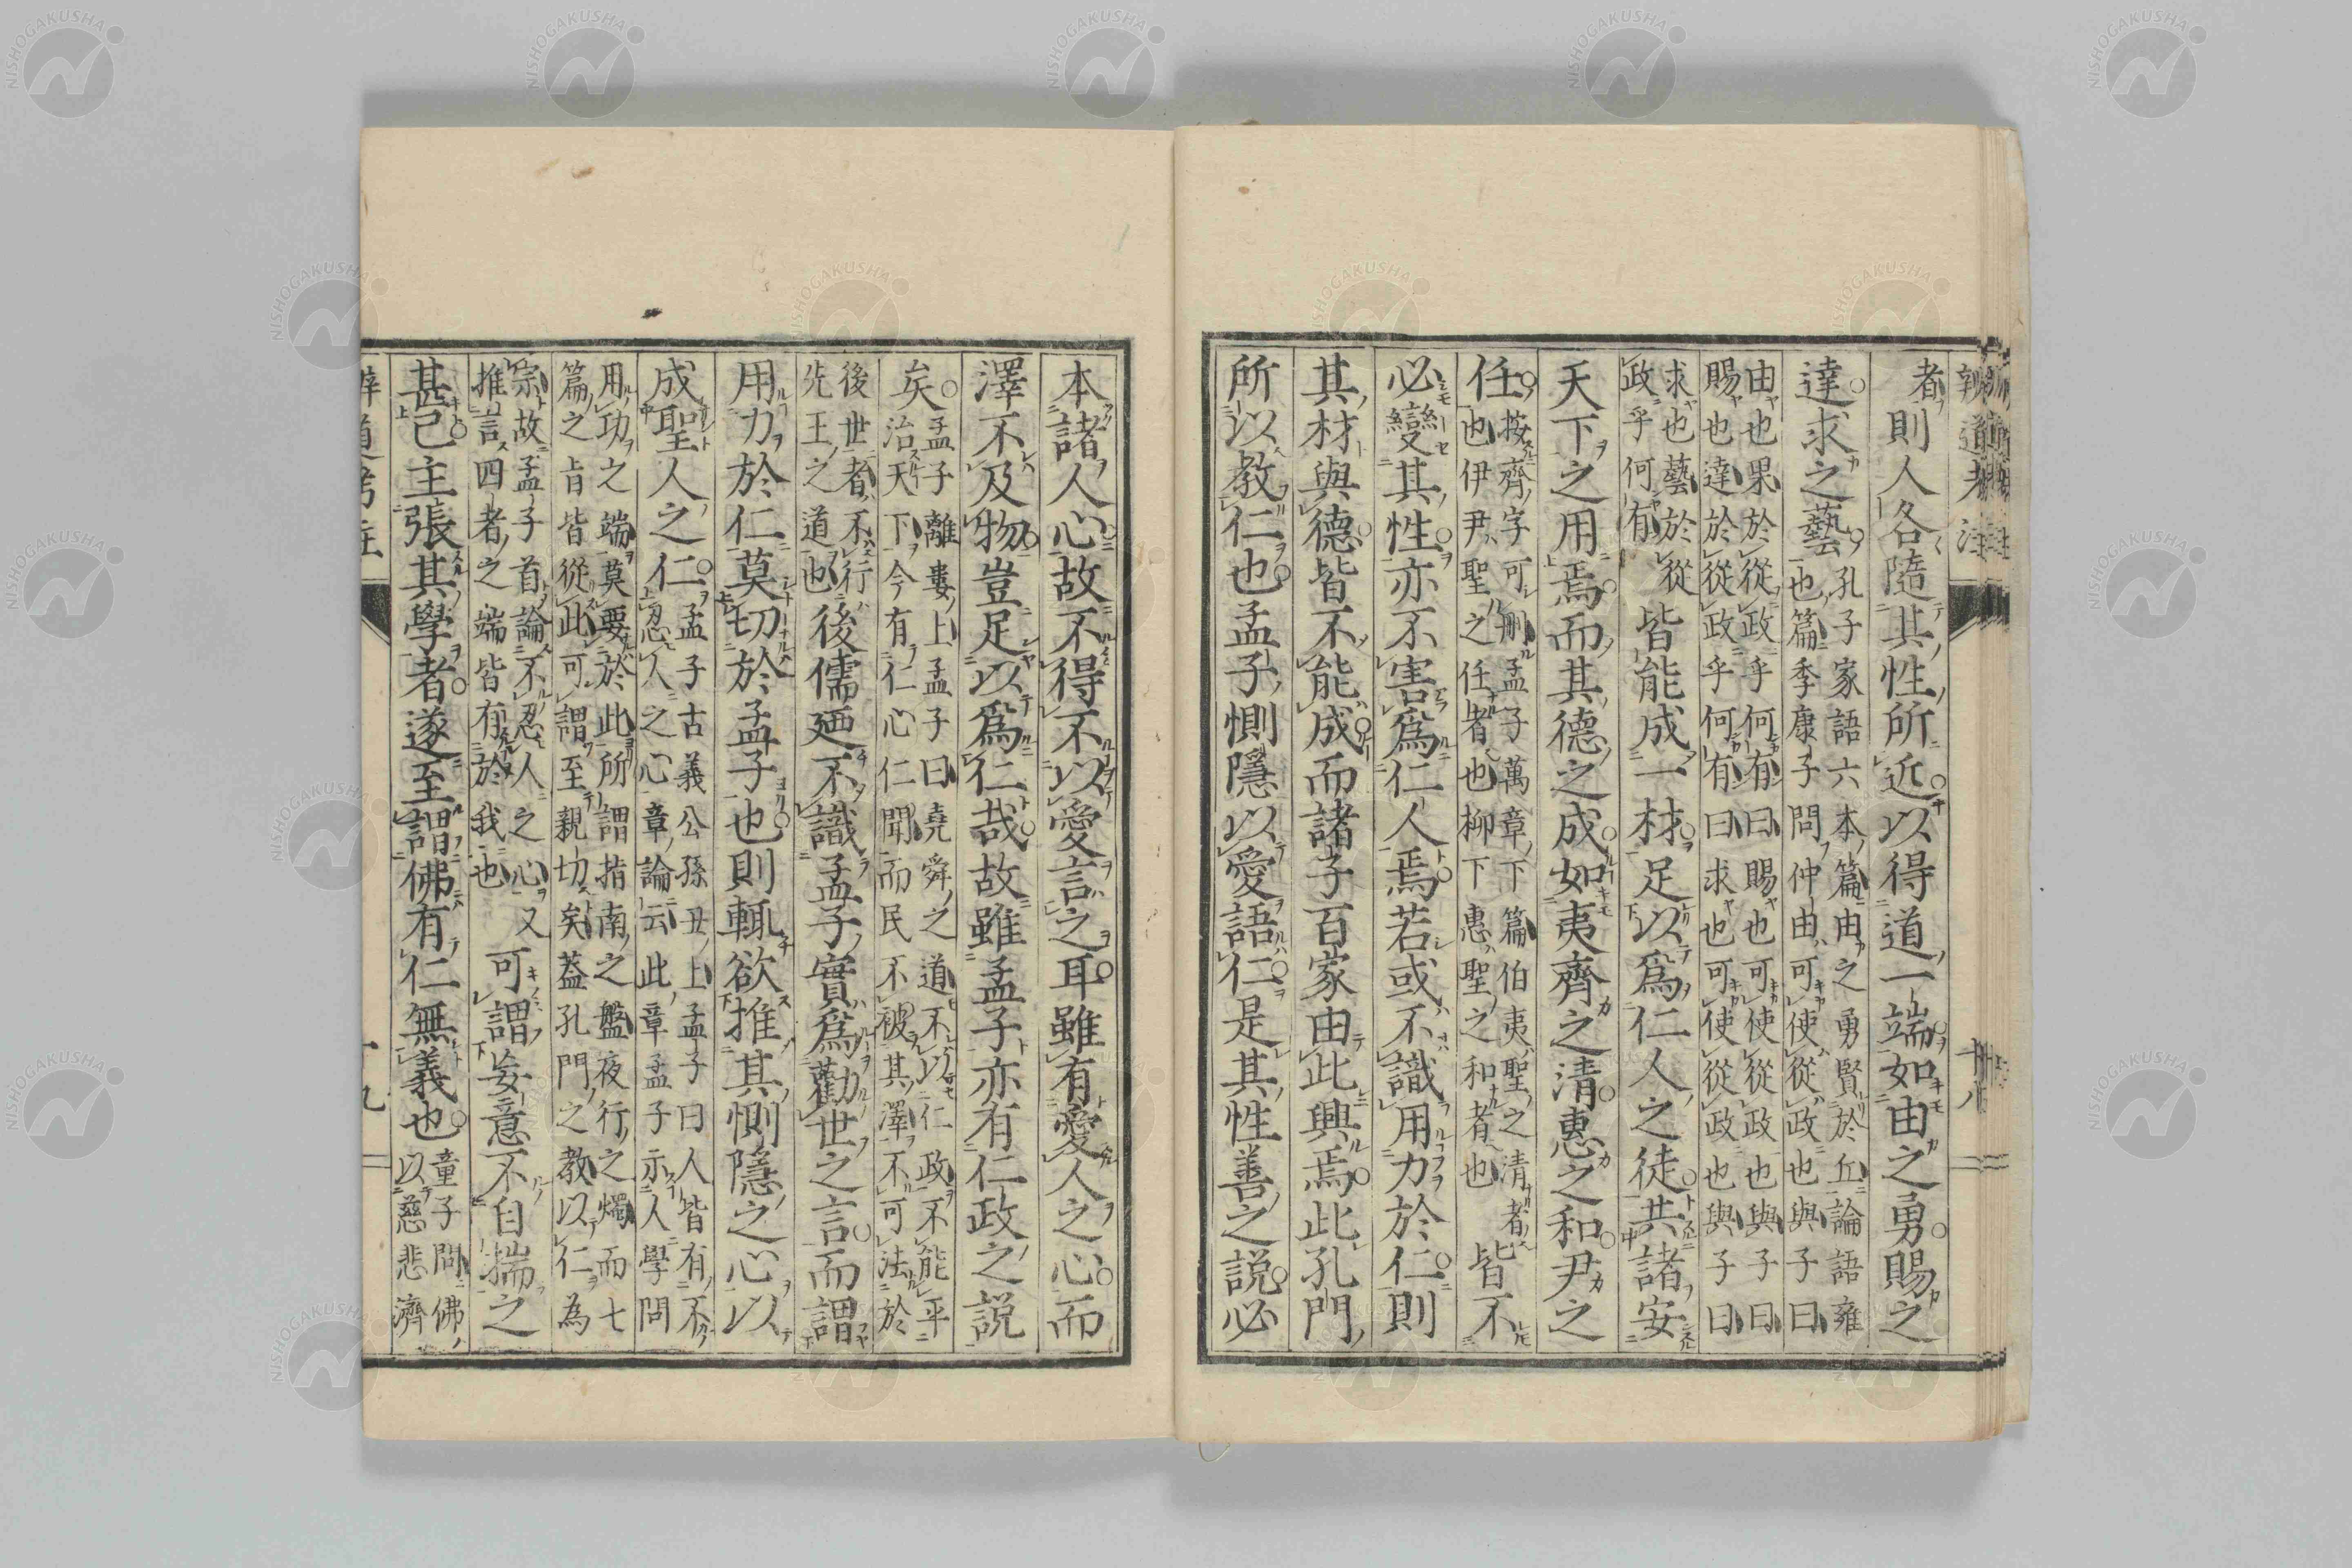 辨道考注 十八
者則人各隨其性所近以得道一端如由之勇賜之
達求之藝孔子家語六本篇由之勇賢於丘論語雍
也篇季康子問仲由可使從政也與子曰
由也果於從政乎何有曰賜也可使從政也與子曰
賜也達於從政乎何有曰求也可使從政也與子曰
求也藝於從
政乎何有皆能成一材足以爲仁人之徒共諸安
天下之用焉而其德之成如夷齊之清惠之和尹之
任按齊字可刪孟子萬章下篇伯夷聖之清者
也伊尹聖之任者也柳下惠聖之和者也皆不
必變其性亦不害爲仁人焉若或不識用力於仁則
其材與德皆不能成而諸子百家由此興焉此孔門
所以教仁也孟子惻隱以愛語仁是其性善之説必
本諸人心故不得不以愛言之耳雖有愛人之心而
澤不及物豈足以爲仁哉故雖孟子亦有仁政之説
矣孟子離婁上孟子曰堯舜之道不以仁政不能平
治天下今有仁心仁聞而民不被其澤不可法於
後世者不行
先王之道也後儒廼不識孟子實爲勸世之言而謂
用力於仁莫切於孟子也則輒欲推其惻隱之心以
成聖人之仁孟子古義公孫丑上孟子曰人皆有不
忍人之心章論云此章孟子示人學問
用功之端莫要於此所謂指南之盤夜行之燭而七
篇之旨皆從此可謂至親切矣蓋孔門之教以仁為
宗故孟子首論不忍人之心又
推言四者之端皆有於我也可謂妄意不自揣之
甚已主張其學者遂至謂佛有仁無義也童子問佛
以慈悲濟
辨道考注 十九